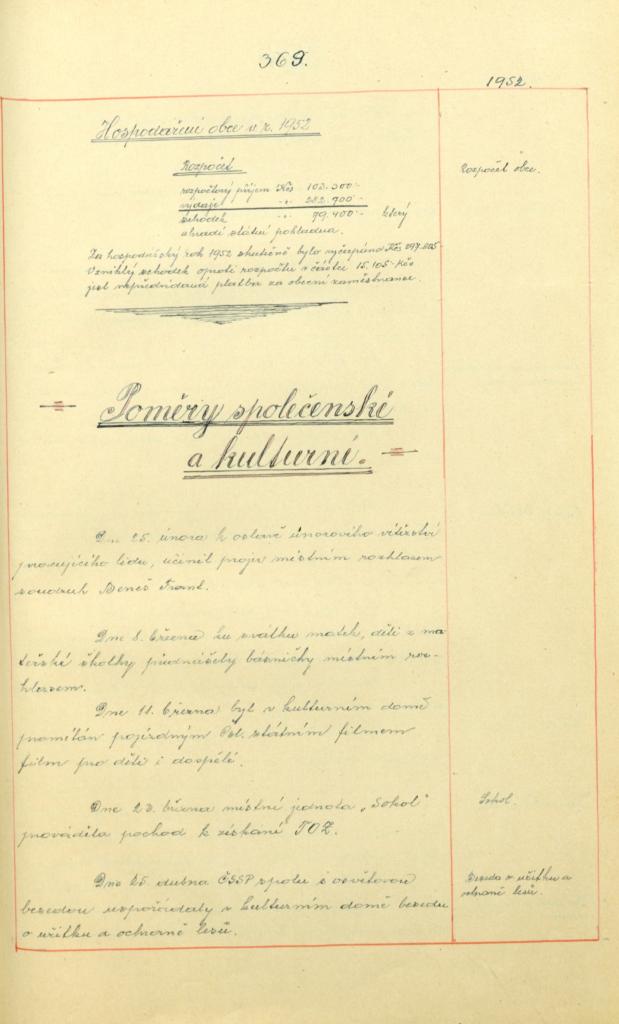 369.
1952.
Hospodaření obce v r. 1952
Rozpočet
Rozpočet obce.
rozpočtový příjem Kčs 103.300·-
výdaje -"- 282.700·-
schodek -"- 79.400·- který
uhradí státní pokladna.
Za hospodářský rok 1952 skutečně bylo vyčerpáno Kčs
Vzniklý schodek oproti rozpočtu v částce 15.105·- Kčs
jest nepředvídaná platba za obecní zaměstnance.
Poměry společenské
a kulturní.
Dne 25. února k oslavě únorového vítězství
pracujícího lidu, učinil projev místním rozhlasem
soudruh Beneš Frant.
Dne 8. března ku svátku matek, děti z ma-
teřské školky přednášely básničky místním roz-
hlasem.
Dne 11. března byl v kulturním domě
promítán pojízdným Čsl. státním filmem
film pro děti i dospělé.
Dne 23. března místní jednota "Sokol"
Sokol.
prováděla pochod k získání TOZ.
Dne 25. dubna ČSSP spolu s osvětovou
Beseda o užitku a
besedou uspořádaly v kulturním domě besedu
ochraně lesů.
o užitku a ochraně lesů.